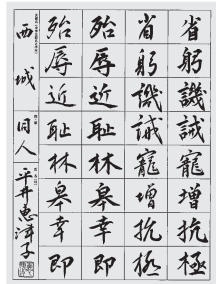 省躬譏誡寵增抗極
省躬譏誡寵増抗極
殆辱近耻林皐幸即
殆辱近耻林皐幸即
西城 平井恵津子